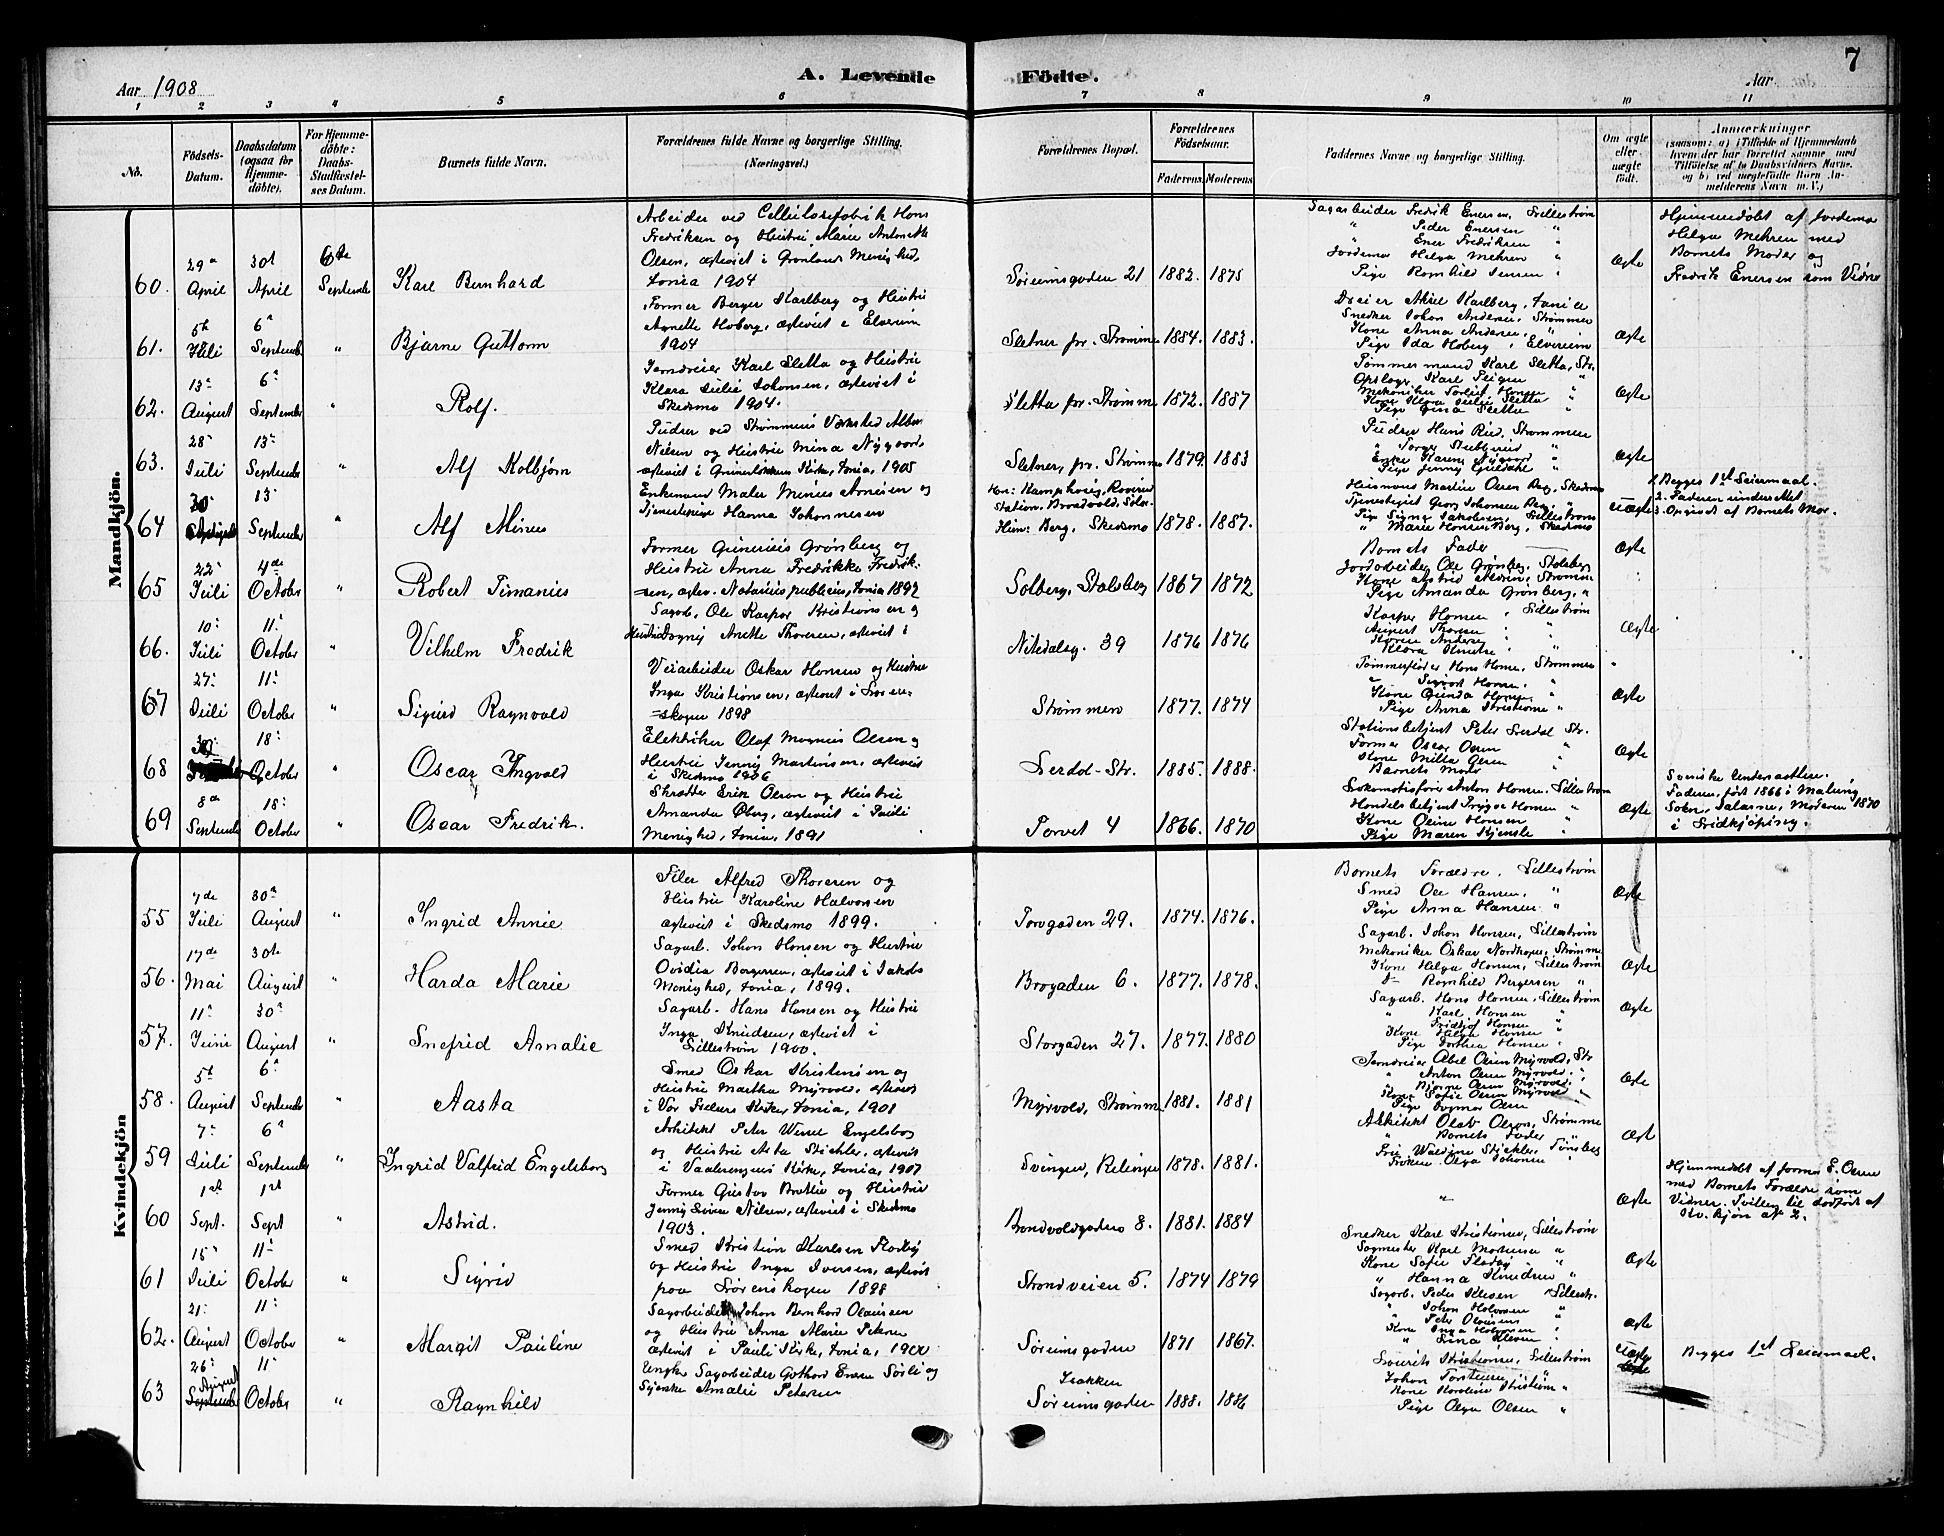 7
A. Levende Födte.
Aar 1908
Aar
1 2 3 4 5 6 7 8 9 10 11
No.
Födsels-Datum.
Daabsdatum (ogsaa for Hjemmedöbte).
For Hjemmedöbte: Daabs-Stadfæstelses Datum.
Barnets fulde Navn.
Forældrenes fulde Navne og borgerlige Stilling. (Næringsvei.)
Forældrenes Bopæl.
Forældrenes Födselsaar.
Faderens. Moderens.
Faddernes Navne og borgerlige Stilling.
Om ægte eller uægte födt.
Anmærkninger
Mandkjön.
60. 29de April
30t April
6te September
Karl Bernhard
Arbeider ved Cellulosefabrik Hans
Fredriksen og Hustru Marie Antonette
Olsen, ægteviet i Grønlands Menighed,
1904
Sørumsgaden 21
1882. 1875
Sagarbeider Fredrik Enersen, Lillestrøm
" Peder Enersen "
" Ener Fredriksen "
Jordemor Helga Mehren "
Pige Ragnhild Jensen "
Ægte
Hjemmedøbt af Jordemor
Helga Mehren med
Barnets Moder og
Fredrik Enersen som Vidne
61. 5te Juli
6te September
"
Bjarne Guttorm
Former Berger Karlberg og Hustru
Agnette Hoberg, ægteviet i Elverum
1904
Sletner pr. Strømmen
1884. 1883.
Dreier Aksel Karlberg,
Snedker Johan Andersen, Strømmen
Kone Anna Andersen, "
Pige Ida Hoberg, Elverum
Ægte
62. 13de August
6te September
"
Rolf.
Jerndreier Karl Sletta og Hustru
Klara Julie Johansen, ægteviet i
Skedsmo 1904.
Sletta pr. Strømmen
1872. 1887
Tømmermand Karl Sletta, Str.
Kone Klara Julie Sletta "
Pige Gina Sletta "
Ægte
63. 28de Juli
13de September
"
Alf Kolbjørn
Pudser ved Strømmens Værksted Albert
Nilsen og Hustru Mina Nygaard,
ægteviet i Grünerløkkens Kirke, 1905
Sletner, pr. Strømmen
1879. 1883
Pudser Hans Rud, Strømmen
Enke Karen Nygaard "
Pige Jenny "
Ægte
64 30 August
13 September
"
Alf Minus
Enkemand Maler Minus Arnesen og
Tjenestepige Hanna Johannesen
Han: Kamphaug, Roverud
Station, Brandvold, Solør
Hun: Berg, Skedsmo
1878. 1887.
Husmand Martin Olsen Berg, Skedsmo
Tjenestegut Georg Johansen Berg, "
Pige Signe Jakobsen, Lillestrøm
Marie Hansen Berg, Skedsmo
Uægte
1. Begges 1st Leiermaal.
2. Faderen undersøttet
3. Opgivet af Barnets Mor.
65 22de Juli
4de October
"
Robert Timanius
Former Gunerius Grønberg og
Hustru Anna Fredrikke Fredrik-
sen, ægtev. Notarius publicus, 1892
Solberg, Stalsberg
1867 1872
Barnets Fader
Jordarbeider Ole Grønberg, Stalsberg
Pige Amanda Grønberg, "
Ægte
66. 10de Juli
11te October
"
Vilhelm Fredrik
Sagarb. Ole Kasper Kristiansen og
Hustru Dagny Anette Thoresen, ægteviet i
Nitedalsg. 39
1876 1876
Kasper Hansen, Lillestrøm
August Thoresen "
Karen Andersen "
Ægte
67 27de Juli
11te October
"
Sigurd Ragnvald
Veiarbeider Oskar Hansen og Hustru
Inga Kristiansen, ægteviet i Søren-
skogen 1898
Strømmen
1877. 1874
Tømmerfløder Hans Hansen, Strømmen
" Sigvart Hansen, "
Kone Gunda Hansen "
Pige Anna Kristiansen "
Ægte
68 30
18de October
"
Oscar Ingvald
Elektriker Olaf Magnus Olsen og
Hustru Jenny Martinsen, ægteviet
i Skedsmo 1906
Lerdal-Str.
1885. 1888.
Stationsbetjent Peter Lerdal Str.
Former Oscar Olsen "
Kone Milla Olsen "
Barnets Moder
Ægte
69 8de September
18de October
"
Oscar Fredrik.
Skrædder Erik Olson og Hustru
Amanda Öberg, ægteviet i Pauli
Menighed, 1891
Torvet 4
1866. 1870
Lokomotivfører Anton Hansen. Lillestrøm
Handelsbetjent Trygve Hansen "
Kone Oline Hansen "
Pige Maren "
Ægte
Svenske Undersaatter.
Faderen født 1866 i Malung
Sokn, Dalarne, Moderen 1870
i Lidkjøping.
Kvindekjön
55 7de Juli
30te August
"
Ingrid Annie
Filer Alfred Thoresen og
Hustru Karoline Halvorsen
ægteviet i Skedsmo 1899.
Torvgaden 29.
1874. 1876.
Barnets Forældre. Lillestrøm
Smed Ole Hansen, "
Pige Anna Hansen "
Ægte
56. 17de Mai
30te August
"
Harda Marie
Sagarb. Johan Hansen og Hustru
Ovidia Bergersen, ægteviet i Jakobs
Menighed, 1899.
Brogaden 6.
1877. 1878.
Sagarb. Johan Hansen, Lillestrøm
Mekaniker Oskar Nordhagen, Strømmen
Kone Helga Hansen, Lillestrøm
Ragnhild Bergersen "
Ægte
57. 11te Juni
30te August
"
Snefrid Amalie
Sagarb. Hans Hansen og Hustru
Inga Knudsen, ægteviet i
Lillestrøm 1900.
Storgaden 27.
1877. 1880
Sagarb. Hans Hansen, Lillestrøm
" Karl Hansen "
Fridtjof Hansen "
Kone Helga Hansen "
Pige Dorthea Hansen "
Ægte
58. 5te August
6te September
"
Aasta
Smed Oskar Kristensen og
Hustru Martha Myrvold, ægteviet
i Vor Frelsers Kirke, 1901
Myrvold, Strømmen
1881. 1881
Jerndreier Abel Olsen Myrvold, Str
" Anton Olsen Myrvold, "
" Bjarne Olsen Myrvold, "
Kone Sofie Olsen Myrvold "
Pige Dagmar Olsen
Ægte
59 7de Juli
6te September
"
Ingrid Valfrid Engelsborg
Arkitekt Peter Engelsborg
og Hustru Asta Stickler, ægteviet
i Vaalerengens Kirke, 1907
Svingen, Rælingen
1878. 1881.
Arkitekt Olav Olson, Strømmen
" Barnets Fader "
Fru Valdine Stickler, Tønsberg
Frøken Olga Johansen "
Ægte
60 1st Sept.
1st Sept
"
Astrid.
Former Gustav Bratlie og Hustru
Jenny Nilsen, ægteviet i Skedsmo
1903.
Brandvoldgadens 8.
1881. 1884
"
Ægte
Hjemmedøbt af former E. Olsen
med Barnets Forældre som
Vidner. Tvilling til dødfødt af
Kv. kjøn № 2.
61 15de Juli
11te October
"
Sigrid
Smed Kristian Karlsen Flodby
og Hustru Inga Iversen, ægteviet
paa Sørenskogen 1898
Strandveien 5.
1874 1879
Snedker Karl Kristiansen, Lillestrøm
Sagmester Karl Madsen "
Kone Sofie Flodby "
" Hanna Knudsen "
Ægte
62. 21de August
11te October
"
Margit Pauline
Sagarbeider Johan Bernhard Olausen
og Hustru Anna Marie Petersen
ægteviet i Pauli Kirke, 1900
Sørumsgaden
1871 1867.
Sagarb. Peder Lillestr.
" Johan Halvorsen "
" Peter Olausen "
Kone Inga Halvorsen "
Ægte
63 26de August September
11 October
"
Ragnhild
Ungkar Sagarbeider Gothard Ener Sørli og
Amalie Petersen
Isakken
Sørumsgaden
1888. 1886
Lourits Kristiansen, Lillestrøm
Johan Torstensen, "
Kone Karoline Kristiansen "
Pige Olga Olsen "
Uægte
Begges 1st Leiermaal.